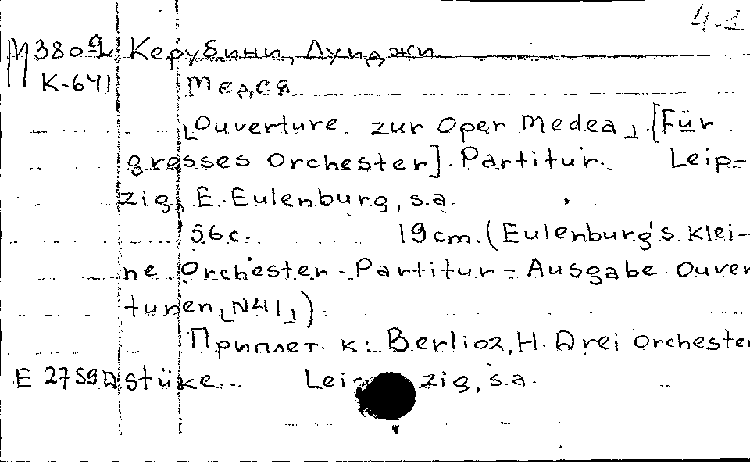 4.1
М380 2 Керубини, Луиджи
К-641 Медея
[Ouverture zur Oper Medea] [Für
grosses Orchester]. Partitur. Leip-
zig, E. Eulenburg, s.a.
56 с. 19 cm. (Eulenburg's klei-
ne Orchester-Partitur-Ausgabe Ouver
turen [N41])
Приплет. к: Berlioz, H. Drei Orchester
E 2759 stüke. Leipzig, s.a.